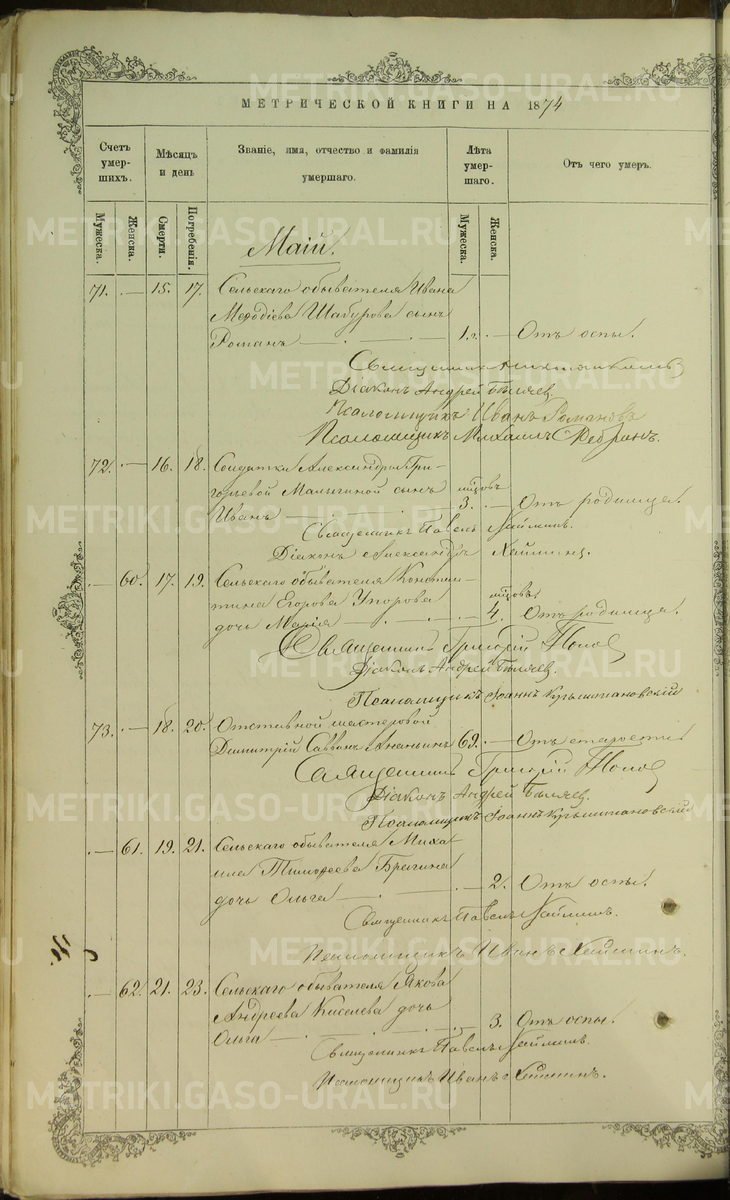 МЕТРИЧЕСКОЙ КНИГИ НА 1874
Счетъ умершихъ.
Мѣсяцъ и день
Званіе, имя, отчество и фамилія умершаго.
Лѣта умершаго.
Отъ чего умеръ.
Мужеска.
Женска.
Смерти.
Погребенія.
Мужеска.
Женска.
Маій.
71. — 15. 17. Сельскаго обывателя Ивана
Меѳодіева Шабурова сынъ
Романъ — 1 г. — Отъ оспы.
Священникъ
Діаконъ Андрей Бѣляев
Псаломщикъ Иванъ Романовъ
Псаломщикъ Михаилъ
72. — 16. 18. Солдатки Александры Гри-
горьевой Малыгиной сынъ
Иванъ 3. — Отъ родимца.
Священникъ Павелъ
Діаконъ Александръ
— 60. 17. 19. Сельскаго обывателя Констан-
тина Егорова Упорова
дочь Марія — 4. Отъ родимца.
Священникъ Григорій Попов
Діаконъ Андрей Бѣляев.
Псаломщикъ Іоаннъ
73. — 18. 20. Отставной мастеровой
Димитрій Саввонъ Ананьинъ 69. — Отъ старости.
Священникъ Григорій Попов
Діаконъ Андрей Бѣляев.
Псаломщикъ Іоаннъ
— 61. 19. 21. Сельскаго обывателя Миха-
ила Тимоѳеева Брагина
дочь Ольга — 2. Отъ оспы.
Священникъ Павелъ
Псаломщикъ Иванъ
— 62. 21. 23. Сельскаго обывателя Якова
Андреева Киселева дочь
Ольга — 3. Отъ оспы.
Священникъ Павелъ
Псаломщикъ Иванъ
METRIKI.GASO-URAL.RU